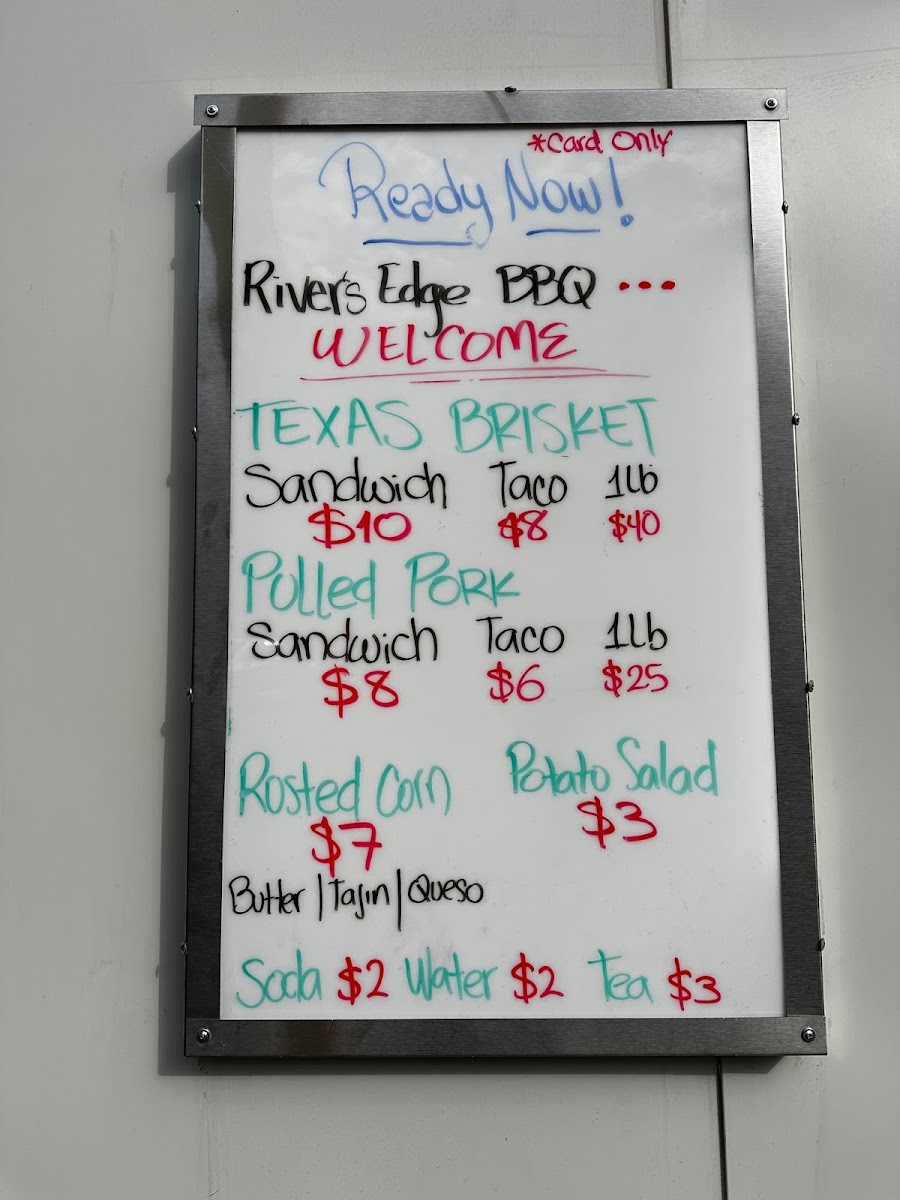 *Card Only
Ready Now!
River's Edge BBQ ...
WELCOME
TEXAS BRISKET
Sandwich Taco 1Lb
$10 $8 $40
Pulled PORK
Sandwich Taco 1Lb
$8 $6 $25
Rosted Corn Potato Salad
$7 $3
Butter | Tajin | Queso
Soda $2 Water $2 Tea $3